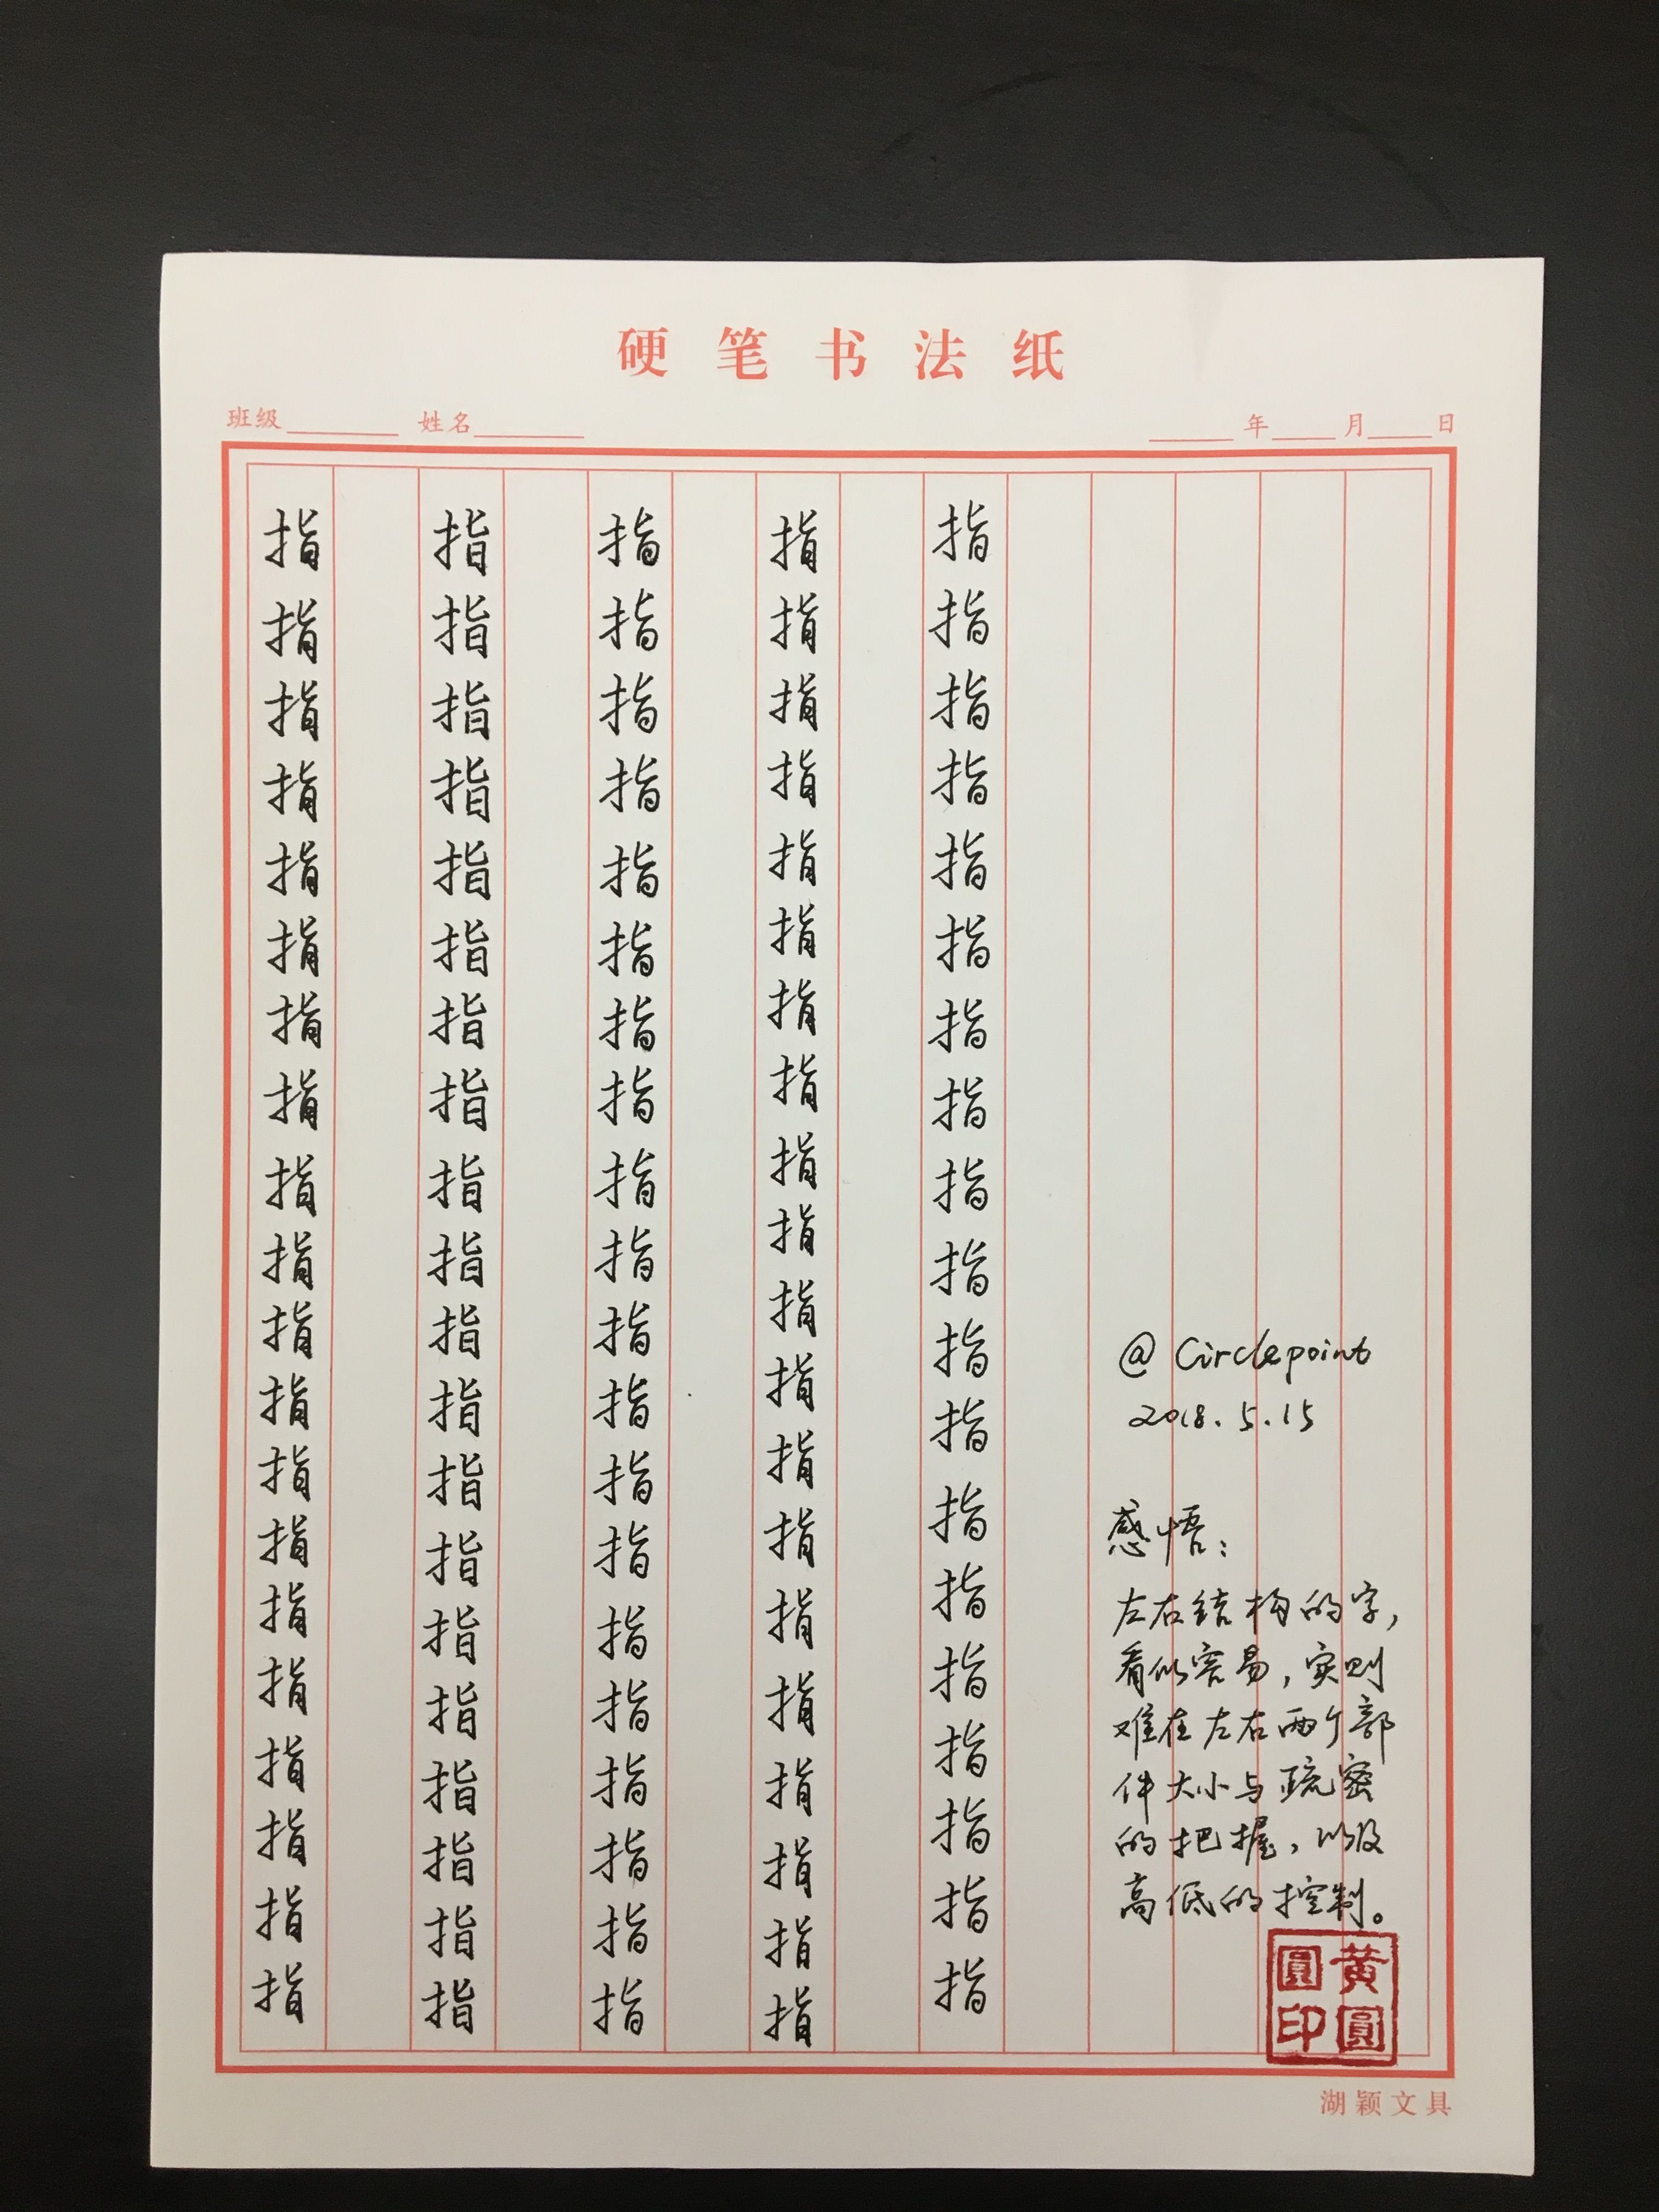 硬笔书法纸
班级 姓名 年 月 日
指指指指指指指指指指指指指指指指指指指指
指指指指指指指指指指指指指指指指指指指指
指指指指指指指指指指指指指指指指指指指指
指指指指指指指指指指指指指指指指指指指指
指指指指指指指指指指指指指指指指指指指
@ Circlepoint
2018.5.15
感悟：
左右结构的字，
看似容易，实则
难在左右两个部
件大小与疏密
的把握，以及
高低的控制。
黄圓
圓印
湖颖文具